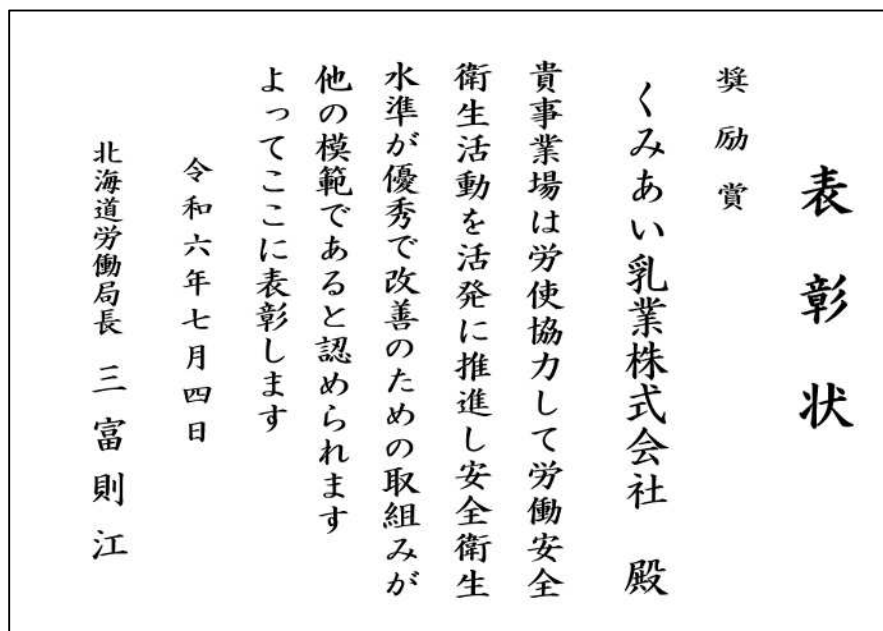 表彰状
奨励賞
くみあい乳業株式会社 殿
貴事業場は労使協力して労働安全
衛生活動を活発に推進し安全衛生
水準が優秀で改善のための取組みが
他の模範であると認められます
よってここに表彰します
令和六年七月四日
北海道労働局長 三富則江